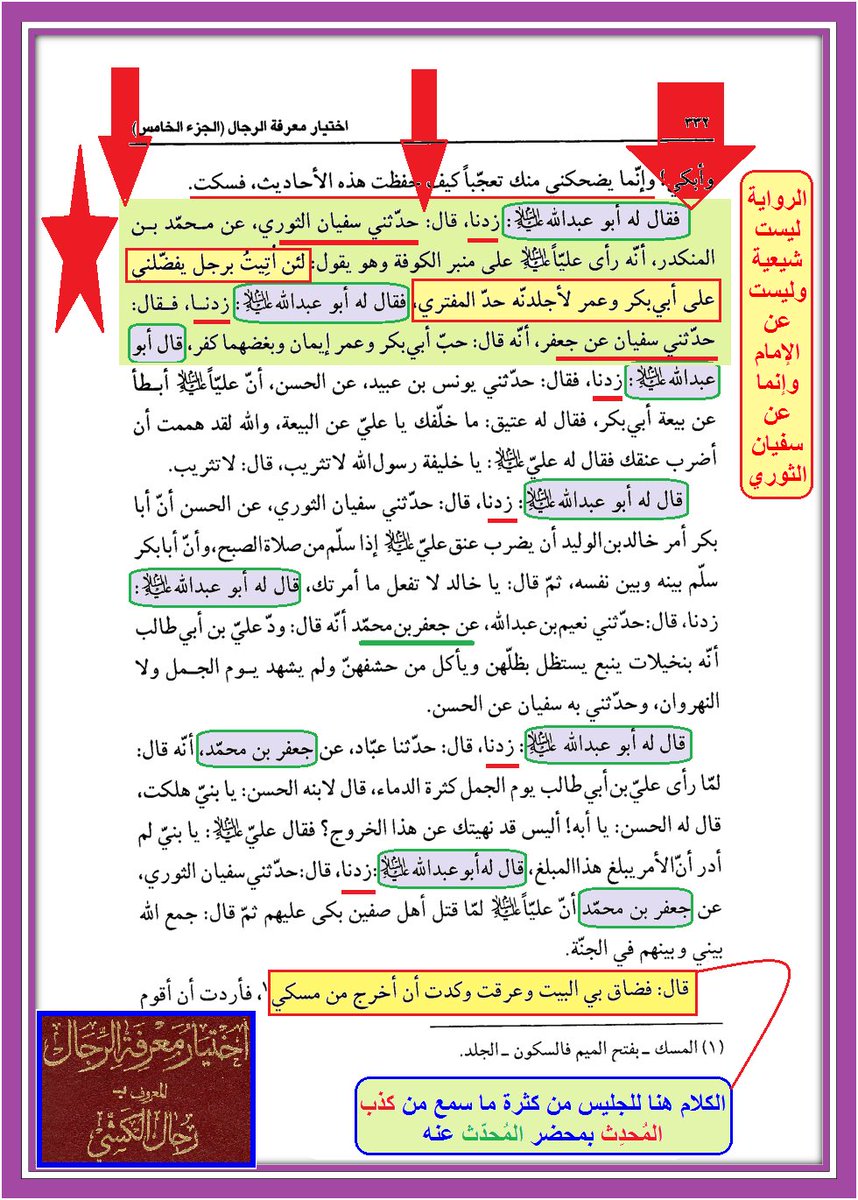 اختيار معرفة الرجال (الجزء الخامس)
٣٣٢
وأبكي! وإنّما يضحكني منك تعجّباً كيف حفظت هذه الأحاديث، فسكت.
فقال له أبو عبدالله عليه السلام: زدنا، قال: حدّثني سفيان الثوري، عن محمّد بـن
المنكدر، أنّه رأى عليّاً عليه السلام على منبر الكوفة وهو يقول: لئن أتِيتُ برجل يفضّلني
على أبي‌بكر وعمر لأجلدنّه حدّ المفتري، فقال له أبو عبدالله عليه السلام: زدنـا، فـقال:
حدّثني سفيان عن جعفر، أنّه قال: حبّ أبي‌بكر وعمر إيمان وبغضهما كفر، قال أبو
عبدالله عليه السلام: زدنا، فقال: حدّثني يونس بن عبيد، عن الحسن، أنّ عليّاً عليه السلام أبـطأ
عن بيعة أبي‌بكر، فقال له عتيق: ما خلّفك يا عليّ عن البيعة، والله لقد هممت أن
أضرب عنقك فقال له عليّ عليه السلام: يا خليفة رسول‌الله لاتثريب، قال: لاتثريب.
قال له أبو عبدالله عليه السلام: زدنا، قال: حدّثني سفيان الثوري، عن الحسن أنّ أبا
بكر أمر خالدبن‌الوليد أن يضرب عنق عليّ عليه السلام إذا سلّم من صلاة الصبح، وأنّ أبابكر
سلّم بينه وبين نفسه، ثمّ قال: يا خالد لا تفعل ما أمرتك، قال له أبو عبدالله عليه السلام:
زدنا، قال: حدّثني نعيم‌بن‌عبدالله، عن جعفربن‌محمّد أنّه قال: ودّ عليّ بن أبي‌طالب
أنّه بنخيلات ينبع يستظل بظلّهن ويأكل من حشفهنّ ولم يشهد يـوم الجـمل ولا
النهروان، وحدّثني به سفيان عن الحسن.
قال له أبو عبدالله عليه السلام: زدنا، قال: حدّثنا عبّاد، عن جعفر بن محمّد، أنّه قال:
لمّا رأى عليّ‌بن‌أبي‌طالب يوم الجمل كثرة الدماء، قال لابنه الحسن: يا بنيّ هلكت،
قال له الحسن: يا أبه! أليس قد نهيتك عن هذا الخروج؟ فقال عليّ عليه السلام: يا بنيّ لم
أدر أنّ الأمر يبلغ هذا المبلغ، قال له أبو عبدالله عليه السلام: زدنا، قال: حدّثني سفيان الثوري،
عن جعفر بن محمّد أنّ عليّاً عليه السلام لمّا قتل أهل صفين بكى عليهم ثمّ قال: جمع الله
بيني وبينهم في الجنّة.
قال: فضاق بي البيت وعرقت وكدت أن أخرج من مسكي١، فأردت أن أقوم
(١) المسك ـ بفتح الميم فالسكون ـ الجلد.
الرواية
ليست
شيعية
وليست
عن
الإمام
وإنما
عن
سفيان
الثوري
الكلام هنا للجليس من كثرة ما سمع من كذب
المُحدِث بمحضر المُحدّث عنه
اختيار معرفة الرجال
المعروف بـ
رجال الكشي